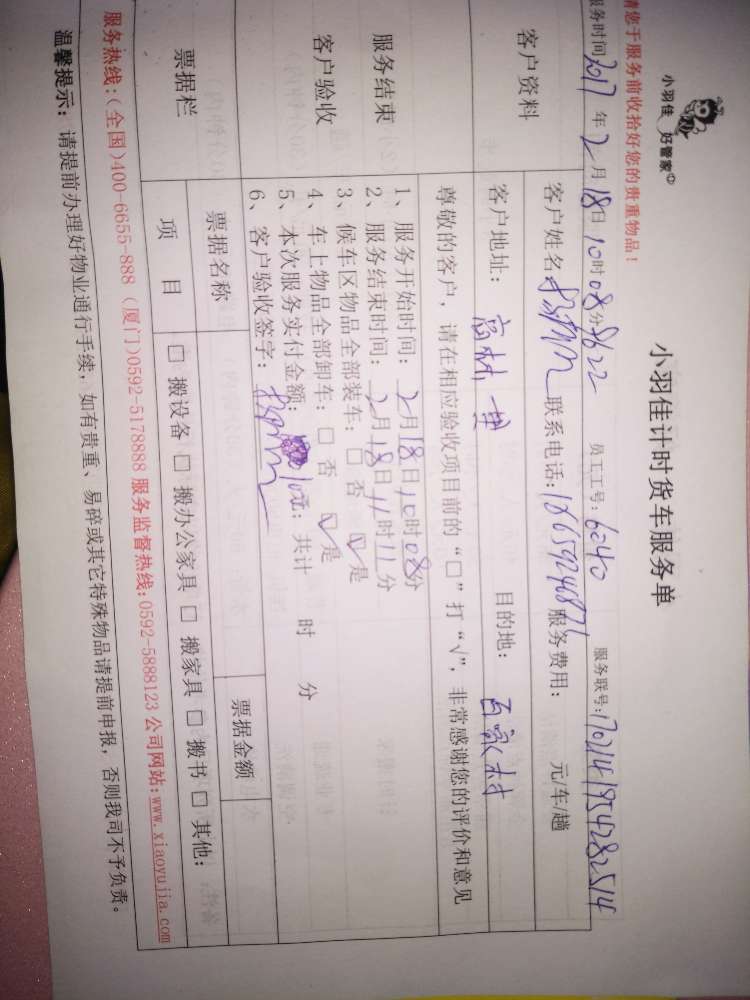 小羽佳 好管家
小羽佳计时货车服务单
请您于服务前收拾好您的贵重物品!
服务时间2017年2月18日10时08分 8622 员工工号:6040 服务联号:1702141954282514
客户资料
客户姓名: 联系电话: 服务费用: 元/车/趟
客户地址: 高林 里 目的地: 百家村
尊敬的客户,请在相应验收项目前的“□”打“√”,非常感谢您的评价和意见
服务结束
客户验收
1、服务开始时间:2月18日10时08分
2、服务结束时间:2月18日11时11分
3、候车区物品全部装车:□否 ☑是
4、车上物品全部卸车:□否 ☑是
5、本次服务实付金额: 元;共计 时 分
6、客户验收签字:
票据栏
票据名称 票据金额
项 目 □搬设备 □搬办公家具 □搬家具 □搬书 □其他:
服务热线:(全国)400-6655-888 (厦门)0592-5178888 服务监督热线:0592-5888123 公司网站:www.xiaoyujia.com
温馨提示:请提前办理好物业通行手续,如有贵重、易碎或其它特殊物品请提前申报,否则我司不予负责。